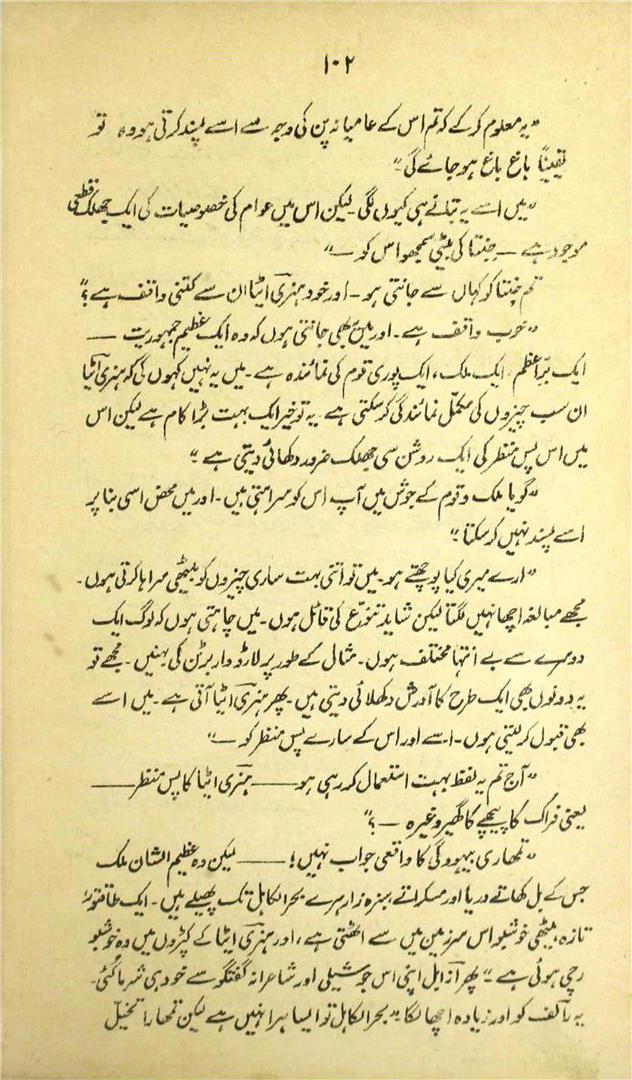 ۱۰۲
"یہ معلوم کر کے کہ تم اس کے عامیانہ پن کی وجہ سے اسے پسند کرتی ہو وہ تو
یقیناً باغ باغ ہو جائے گی"
"میں اسے یہ بتانے ہی کیوں لگی۔ لیکن اس میں عوام کی خصوصیات کی ایک جھلک قطعی
موجود ہے — جنتا کی بیٹی سمجھو اس کو —"
تم جنتا کو کہاں سے جانتی ہو۔ اور خود ہنری آیٹا ان سے کتنی واقف ہے؟"
"خوب واقف ہے۔ اور میں بھی جانتی ہوں کہ وہ ایک عظیم جمہوریت —
ایک برّاعظم، ایک ملک، ایک پوری قوم کی نمائندہ ہے۔ میں یہ نہیں کہوں گی کہ ہنری آیٹا
ان سب چیزوں کی مکمل نمائندگی کر سکتی ہے۔ یہ تو خیر ایک بہت بڑا کام ہے لیکن اس
میں اس پس منظر کی ایک روشن سی جھلک ضرور دکھائی دیتی ہے۔"
"گویا ملک و قوم کے جوش میں آپ اس کو سراہتی ہیں۔ اور میں محض اسی بنا پر
اسے پسند نہیں کر سکتا۔"
"ارے میری کیا پوچھتے ہو۔ میں تو اتنی بہت ساری چیزوں کو بیٹھی سراہا کرتی ہوں۔
مجھے مبالغہ اچھا نہیں لگتا لیکن شاید تنوّع کی قائل ہوں۔ میں چاہتی ہوں کہ لوگ ایک
دوسرے سے بے انتہا مختلف ہوں۔ مثال کے طور پر لارڈ واربرٹن کی بہنیں۔ مجھے تو
یہ دونوں بھی ایک طرح کا آدرش دکھلائی دیتی ہیں۔ پھر ہنری آیٹا آتی ہے۔ میں اسے
بھی قبول کر لیتی ہوں۔ اسے اور اس کے سارے پس منظر کو —"
"آج تم یہ لفظ بہت استعمال کر رہی ہو —— ہنری آیٹا کا پس منظر ——
یعنی فراک کا پیچھے کا گھیر وغیرہ —؟"
"تمھاری بیہودگی کا واقعی جواب نہیں! —— لیکن وہ عظیم الشان ملک
جس کے بل کھاتے دریا اور مسکراتے سبزہ زار ہرے بحرالکاہل تک پھیلے ہیں۔ ایک طاقتور
تازہ میٹھی خوشبو اس سرزمین میں سے اٹھتی ہے، اور ہنری آیٹا کے کپڑوں میں وہ خوشبو
رچی ہوئی ہے۔" پھر ازابل اپنی اس جوشیلی اور شاعرانہ گفتگو سے خود ہی شرما گئی۔
یہ رآلف کو اور زیادہ اچھا لگا۔ "بحرالکاہل تو ایسا ہرا نہیں ہے لیکن تمھارا تخیل